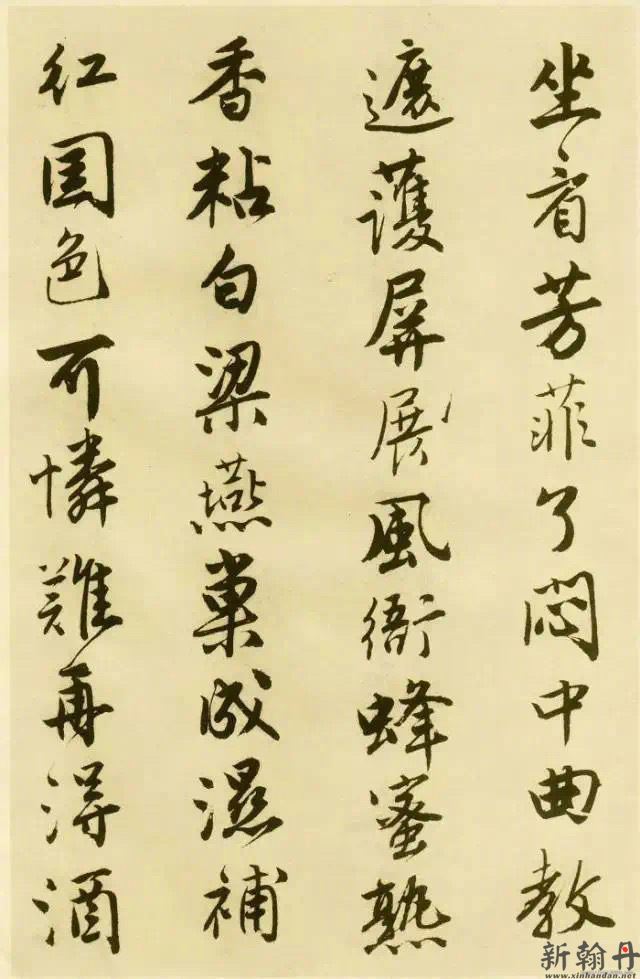 坐看芳菲了悶中曲教
遮護屏展風衙蜂蜜熟
香粘白梁燕巢成濕補
紅國色可憐難再得酒
新翰丹
www.xinhandan.net